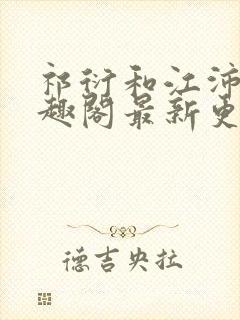 祁衍和江沛
趣阁最新更
德吉央拉